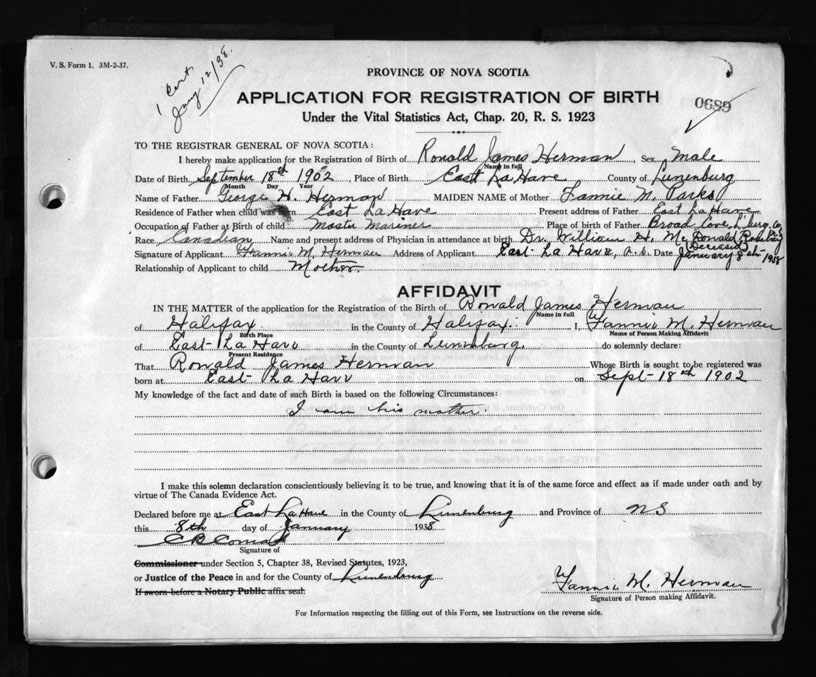 V. S. Form 1. 3M-2-37.
1 Cert.
Jany 12/38.
PROVINCE OF NOVA SCOTIA
APPLICATION FOR REGISTRATION OF BIRTH
0689
Under the Vital Statistics Act, Chap. 20, R. S. 1923
TO THE REGISTRAR GENERAL OF NOVA SCOTIA:
I hereby make application for the Registration of Birth of Ronald James Herman, Sex Male
Name in full
Date of Birth September 18th 1902 Place of Birth East La Have County of Lunenburg
Month Day Year
Name of Father George H. Herman MAIDEN NAME of Mother Fannie M. Parks
Residence of Father when child was born East La Have Present address of Father East La Have
Occupation of Father at Birth of child Master Mariner Place of birth of Father Broad Cove, L'burg Co.
Race Canadian Name and present address of Physician in attendance at birth Dr. William H. Mc Donald (Decessed)
Signature of Applicant Fannie M. Herman Address of Applicant East La Have, Date January 8th 1938
Relationship of Applicant to child Mother.
AFFIDAVIT
IN THE MATTER of the application for the Registration of the Birth of Ronald James Herman
Name in full
of Halifax in the County of Halifax. I, Fannie M. Herman
Birth Place Name of Person Making Affidavit
of East La Have in the County of Lunenburg. do solemnly declare:
Present Residence
That Ronald James Herman Whose Birth is sought to be registered was
born at East La Have on Sept 18th 1902
My knowledge of the fact and date of such Birth is based on the following Circumstances:
I am his mother.
I make this solemn declaration conscientiously believing it to be true, and knowing that it is of the same force and effect as if made under oath and by
virtue of The Canada Evidence Act.
Declared before me at East La Have in the County of Lunenburg and Province of NS
this 8th day of January 1938
C B Conrad
Signature of
Commissioner under Section 5, Chapter 38, Revised Statutes, 1923,
or Justice of the Peace in and for the County of Lunenburg
Fannie M. Herman
If sworn before a Notary Public affix seal.
Signature of Person making Affidavit.
For Information respecting the filling out of this Form, see Instructions on the reverse side.